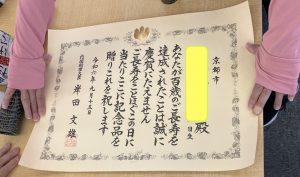 京都市
殿
日生
あなたが百歳のご長寿を
達成されたことは誠に
慶賀にたえません
ご長寿をことほぐこの日に
当たりここに記念品を
贈りこれを祝します
令和六年九月十五日
内閣総理大臣 岸田文雄